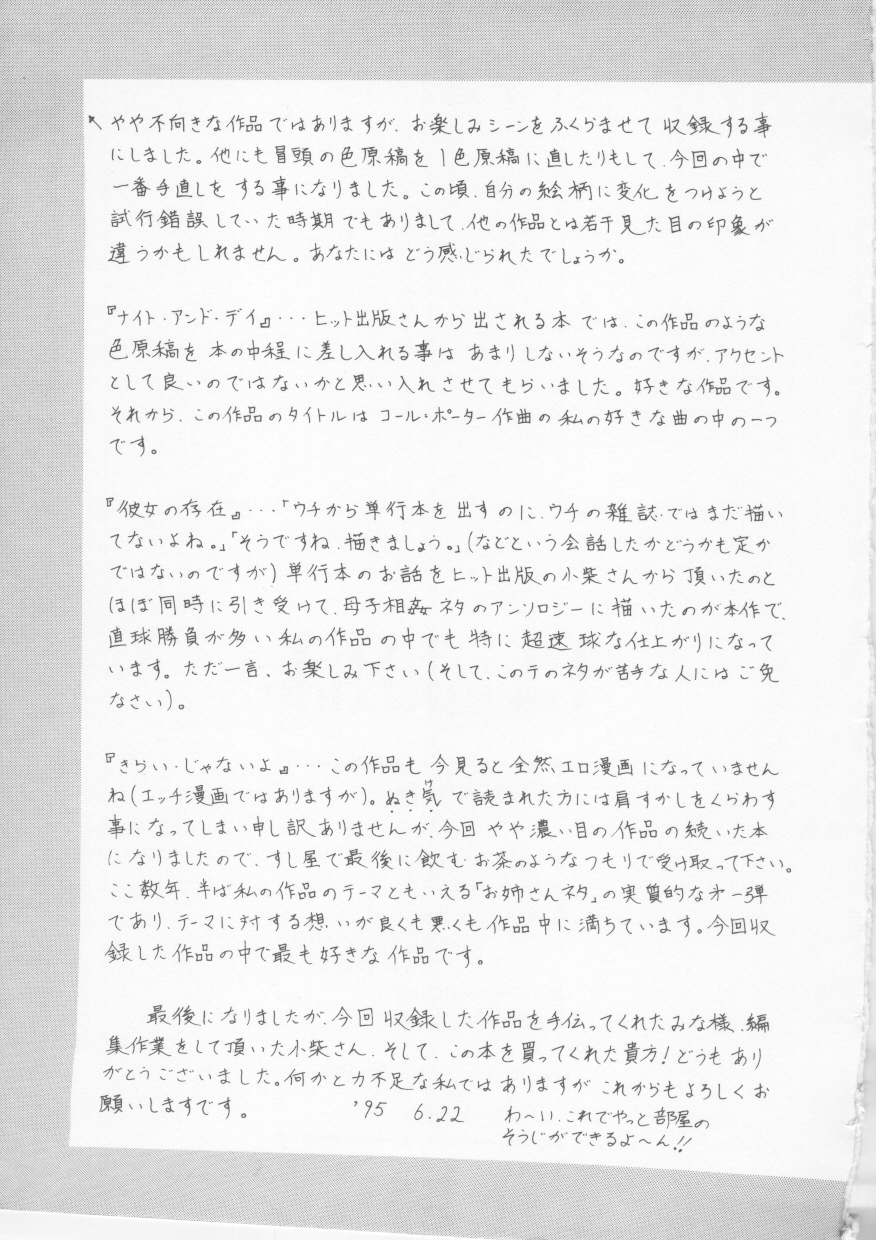 やや不向きな作品ではありますが、お楽しみシーンをふくらませて収録する事
にしました。他にも冒頭の色原稿を1色原稿に直したりもして、今回の中で
一番手直しをする事になりました。この頃、自分の絵柄に変化をつけようと
試行錯誤していた時期でもありまして、他の作品とは若干見た目の印象が
違うかもしれません。あなたにはどう感じられたでしょうか。
『ナイト・アンド・デイ』・・・ヒット出版さんから出される本では、この作品のような
色原稿を本の中程に差し入れる事はあまりしないそうなのですが、アクセント
として良いのではないかと思い入れさせてもらいました。好きな作品です。
それから、この作品のタイトルはコール=ポーター作曲の私の好きな曲の中の一つ
です。
『彼女の存在』・・・「ウチから単行本を出すのに、ウチの雑誌ではまだ描い
てないよね。」「そうですね、描きましょう。」(などという会話したかどうかも定か
ではないのですが)単行本のお話をヒット出版の小柴さんから頂いたのと
ほぼ同時に引き受けて、母子相姦ネタのアンソロジーに描いたのが本作で、
直球勝負が多い私の作品の中でも特に超速球な仕上がりになって
います。ただ一言、お楽しみ下さい(そして、このテのネタが苦手な人にはご免
なさい)。
『きらい・じゃないよ』・・・この作品も今見ると全然エロ漫画になっていません
ね(エッチ漫画ではありますが)。ぬき気(け)で読まれた方には肩すかしをくらわす
事になってしまい申し訳ありませんが、今回やや濃い目の作品の続いた本
になりましたので、すし屋で最後に飲むお茶のようなつもりで受け取って下さい。
ここ数年、半ば私の作品のテーマともいえる「お姉さんネタ」の実質的な才一弾
であり、テーマに対する想いが良くも悪くも作品中に満ちています。今回収
録した作品の中で最も好きな作品です。
最後になりましたが、今回収録した作品を手伝ってくれたみな様、編
集作業をして頂いた小柴さん、そして、この本を買ってくれた貴方!どうもあり
がとうございました。何かと力不足な私ではありますがこれからもよろしくお
願いしますです。 '95 6.22 わ〜い、これでやっと部屋の
そうじができるよ〜ん!!